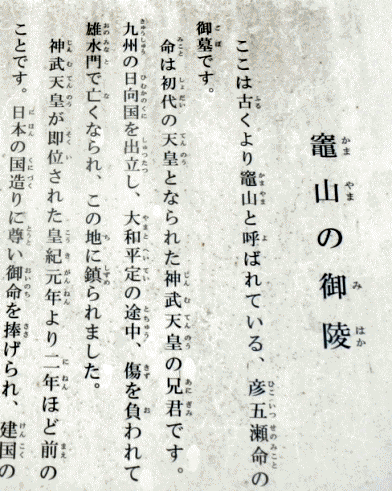 竈山の御陵
ここは古くより竈山と呼ばれている、彦五瀬命の
御墓です。
命は初代の天皇となられた神武天皇の兄君です。
九州の日向国を出立し、大和平定の途中、傷を負われて
雄水門で亡くなられ、この地に鎮られました。
神武天皇が即位された皇紀元年より二年ほど前の
ことです。日本の国造りに尊い御命を捧げられ、建国の